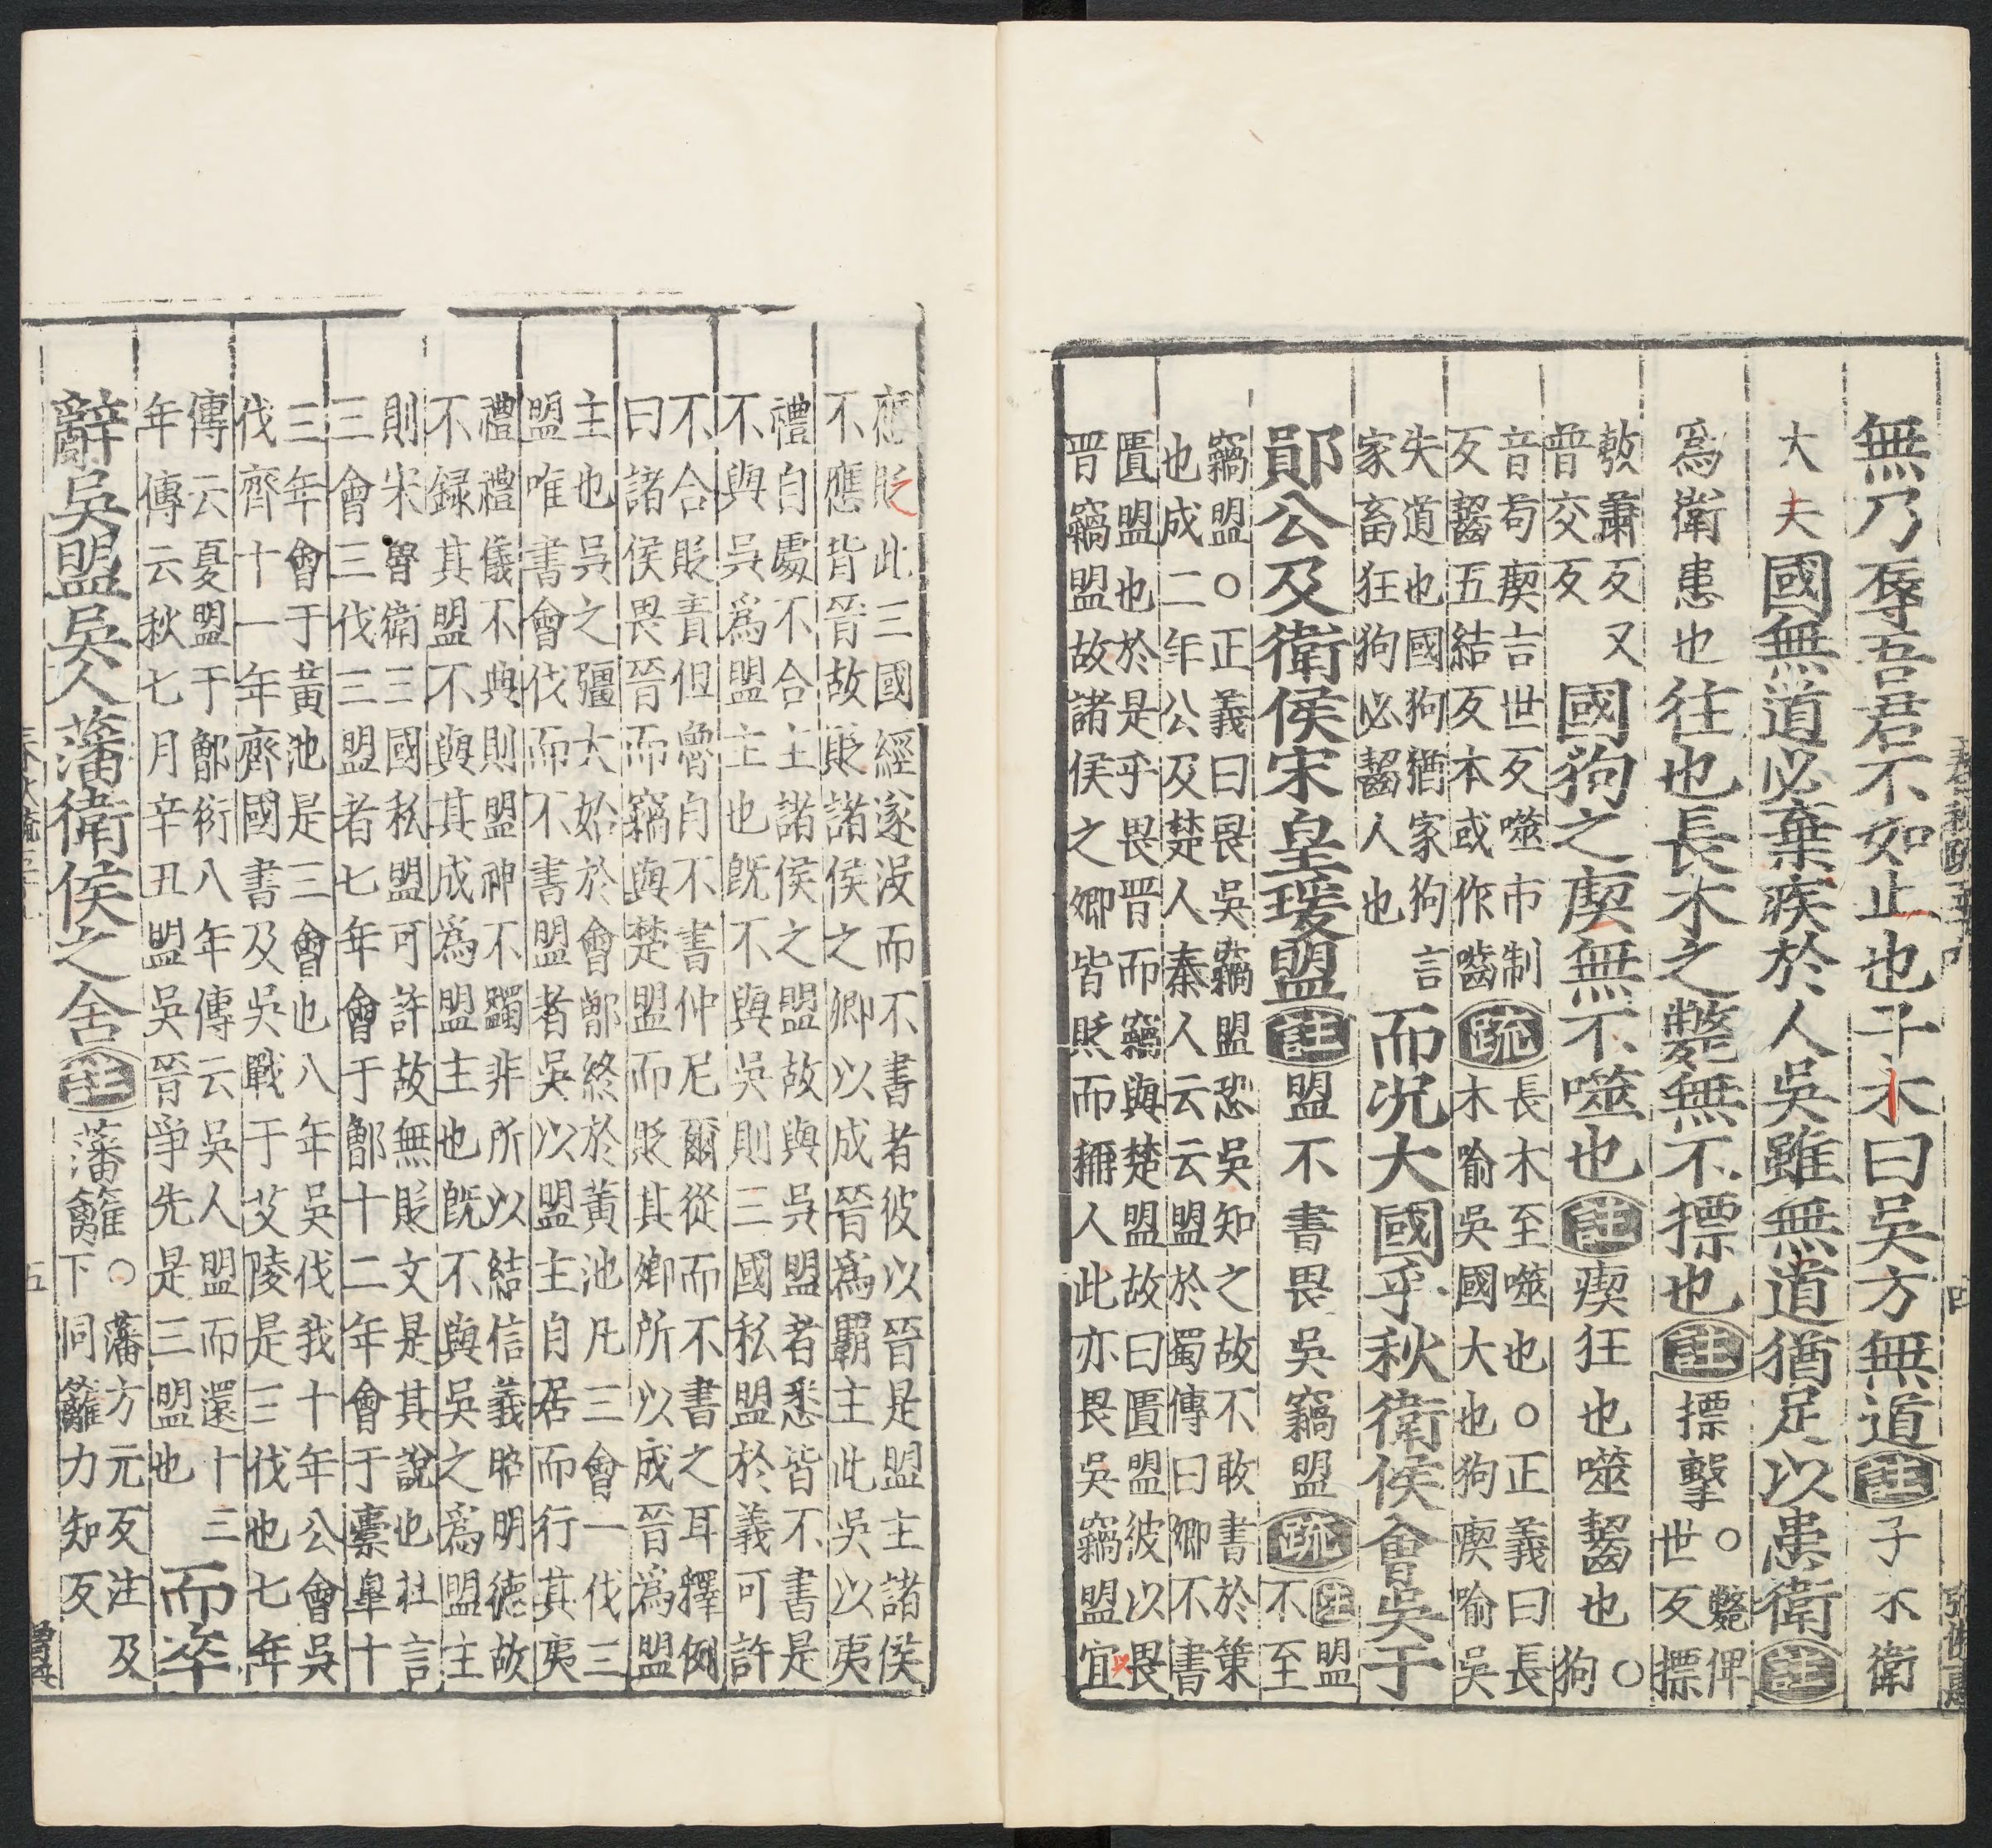 無乃辱吾君不如止也子木曰吳方無道註子木衛
大夫國無道必棄疾於人吳雖無道猶足以患衛註
爲衛患也往也長木之斃無不摽也註摽擊。斃俾
世反摽
敷蕭反又
普交反國狗之瘈無不噬也註瘈狂也噬齧也。
狗
音茍瘈吉世反噬市制
反齧五結反本或作嚙疏長木至噬也。正義曰長
木喻吳國大也狗瘈喻吳
失道也國狗猶家狗言
家畜狂狗必齧人也而況大國乎秋衛侯會吳于
鄖公及衛侯宋皇瑗盟註盟不書畏吳竊盟疏註盟
不至
竊盟。正義曰畏吳竊盟恐吳知之故不敢書於策
也成二年公及楚人秦人云云盟於蜀傳曰卿不書
匱盟也於是乎畏晋而竊與楚盟故曰匱盟彼以畏
晋竊盟故諸侯之卿皆貶而稱人此亦畏吳竊盟宜
四
應貶此三國經遂沒而不書者彼以晉是盟主諸侯
不應背晉故貶諸侯之卿以成晉爲霸主此吳以夷
禮自處不合主諸侯之盟故與吳盟者悉皆不書是
不與吳爲盟主也旣不與吳則三國私盟於義可許
不合貶責但魯自不書仲尼爾從而不書之耳釋例
曰諸侯畏晉而竊與楚盟而貶其卿所以成晉爲盟
主也吳之彊大始於會鄫終於黃池凡三會一伐三
盟唯書會伐而不書盟者吳以盟主自居而行其夷
禮禮儀不典則盟神不蠲非所以結信義昭明德故
不録其盟不與其成爲盟主也旣不與吳之爲盟主
則宋魯衛三國私盟可許故無貶文是其說也杜言
三會三伐三盟者七年會于鄫十二年會于橐臯十
三年會于黃池是三會也八年吳伐我十年公會吳
伐齊十一年齊國書及吳戰于艾陵是三伐也七年
傳云夏盟于鄫衍八年傳云吳人盟而還十三
年傳云秋七月辛丑盟吳晉爭先是三盟也而卒
辭吳盟吳人藩衛侯之舍註藩籬。藩方元反注及
下同籬力知反
五